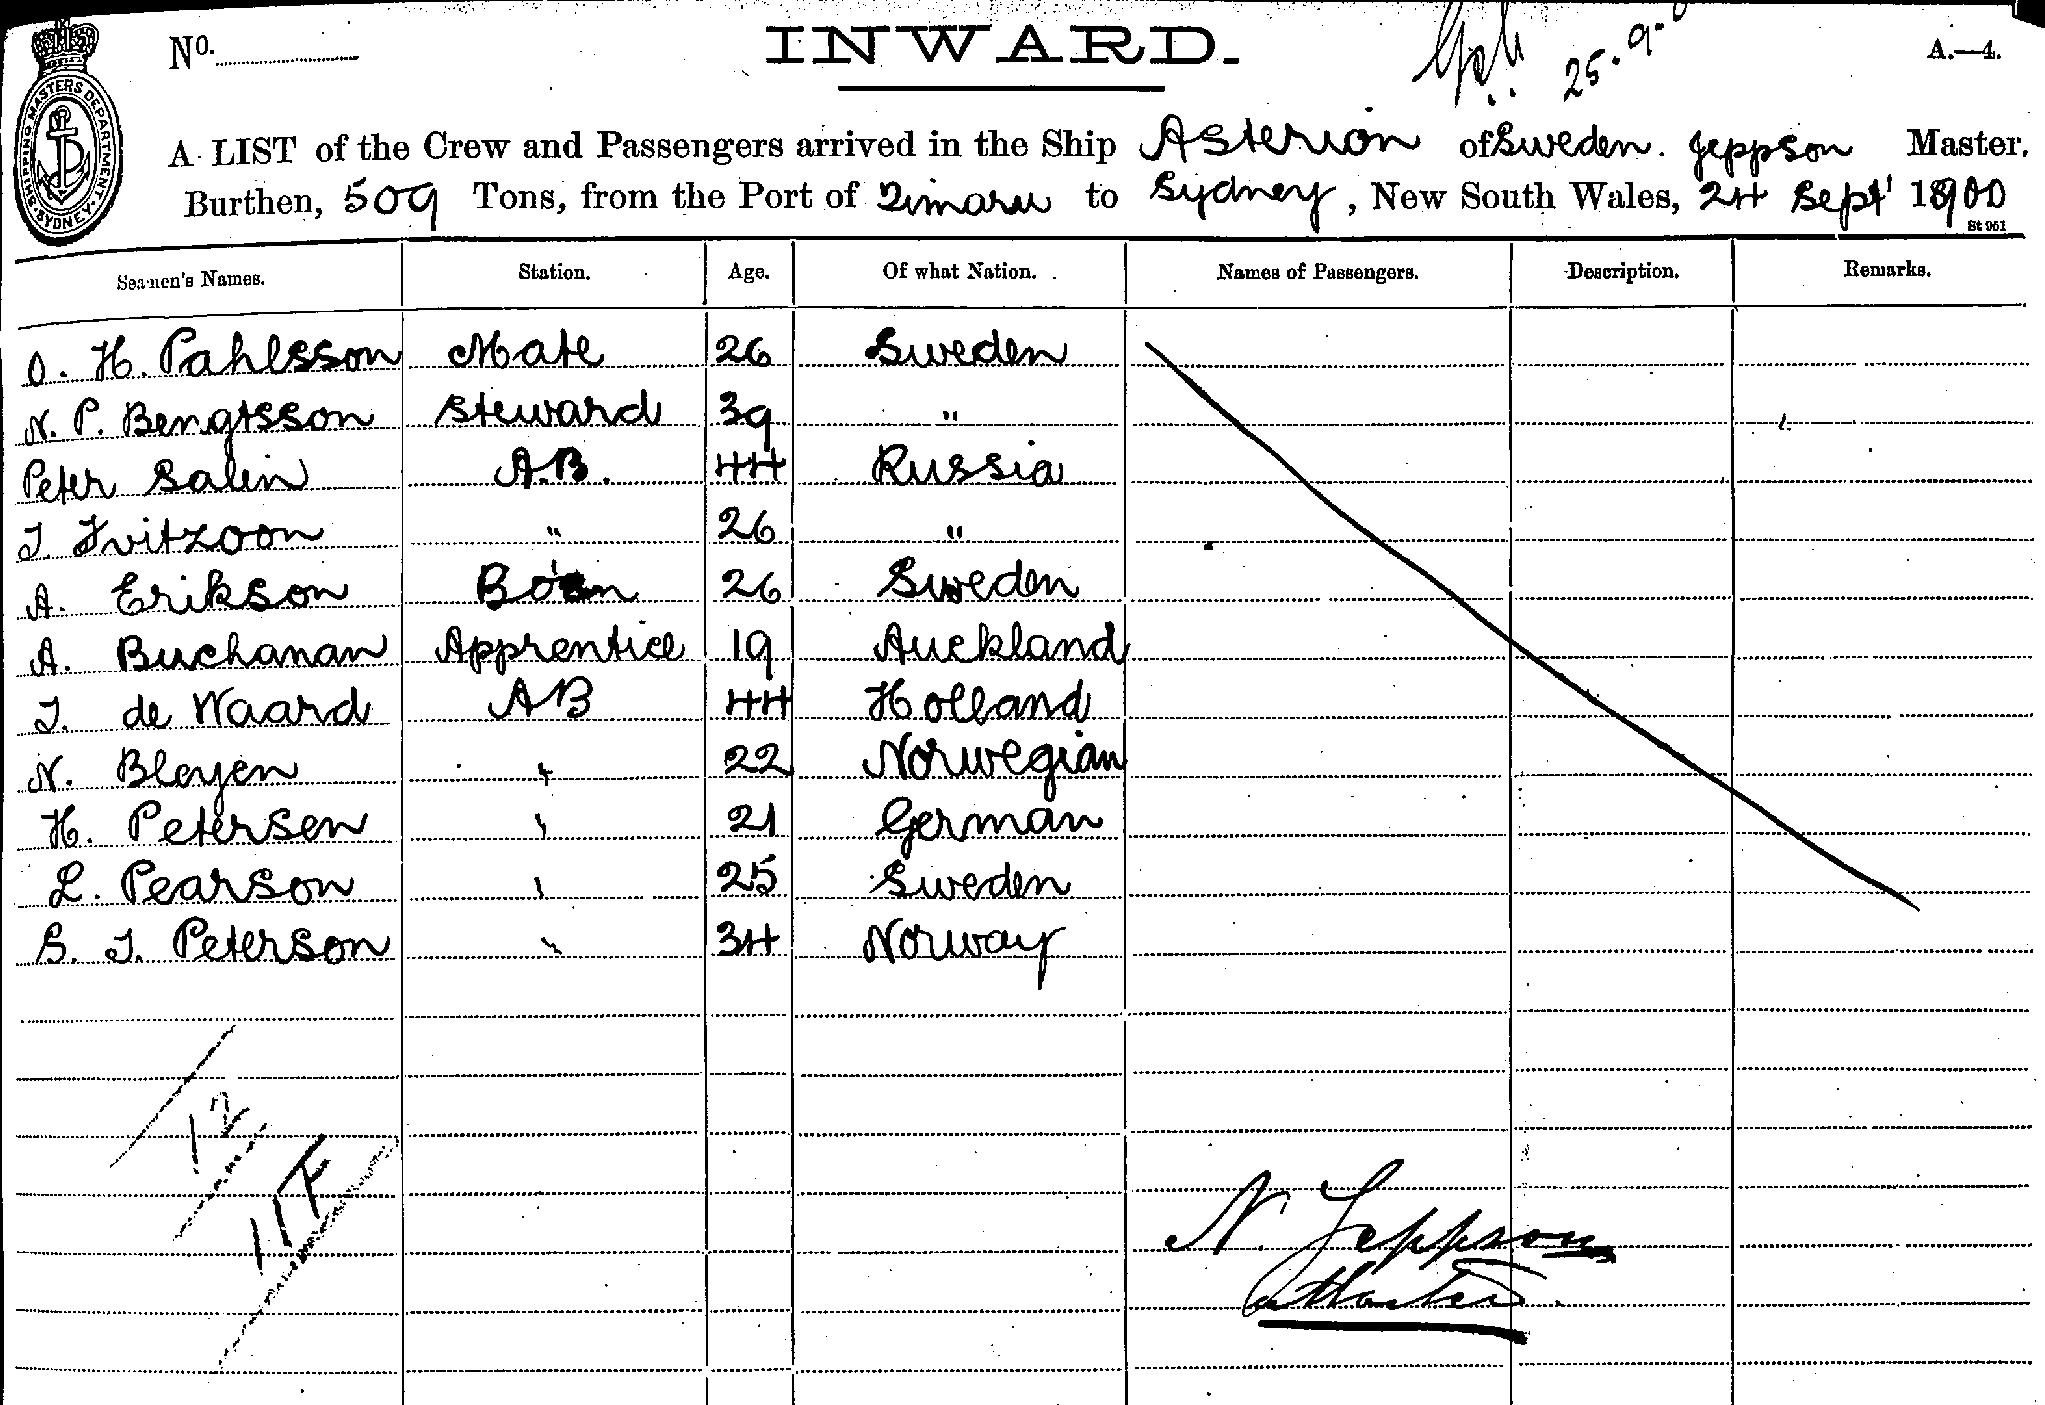 No. INWARD. 25.9. A.—4.
SHIPPING MASTERS DEPARTMENT SYDNEY
A LIST of the Crew and Passengers arrived in the Ship Asterion of Sweden. Jeppson Master,
Burthen, 509 Tons, from the Port of Timaru to Sydney, New South Wales, 24 Sept 1900
St 961
Seamen's Names. Station. Age. Of what Nation. Names of Passengers. Description. Remarks.
O. H. Pahlsson Mate 26 Sweden
N. P. Bengtsson Steward 39 "
Peter Salin A.B. 44 Russia
J. Fritzoon " 26 "
A. Erikson 26 Sweden
A. Buchanan Apprentice 19 Auckland
J. de Waard AB 44 Holland
N. Bleyen " 22 Norwegian
H. Petersen " 21 German
L. Pearson " 25 Sweden
S. J. Peterson " 34 Norway
12
11F
N. Jeppson
Master.